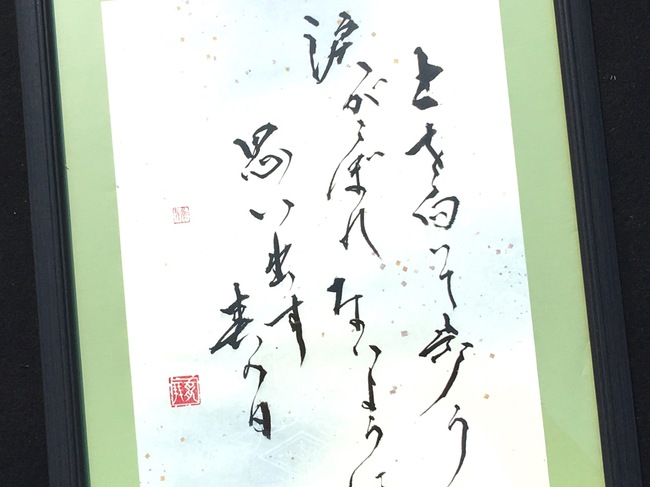 上を向いて歩こう
涙がこぼれないように
思い出す春の日